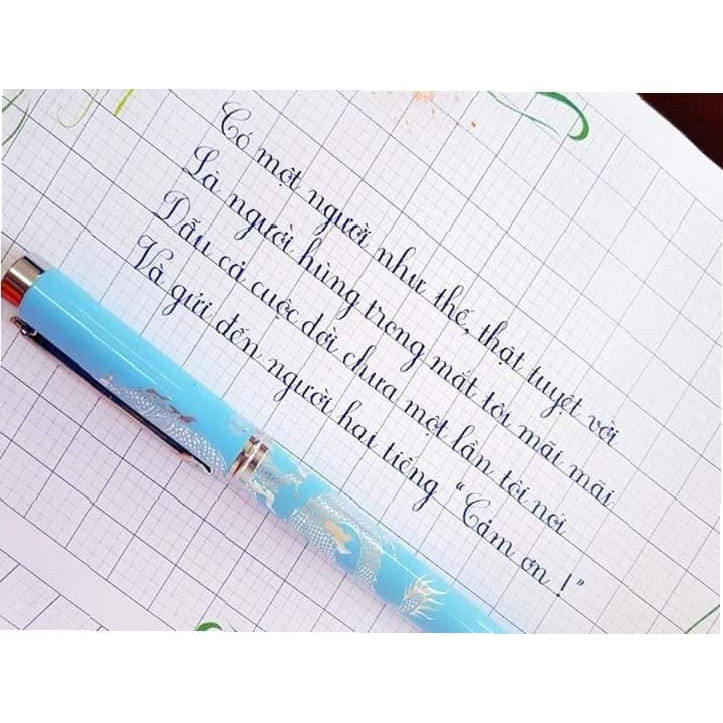 Có một người như thế, thật tuyệt vời
Là người hùng trong mắt tôi mãi mãi
Dẫu cả cuộc đời chưa một lần tôi nói
Và gửi đến người hai tiếng "Cảm ơn !"